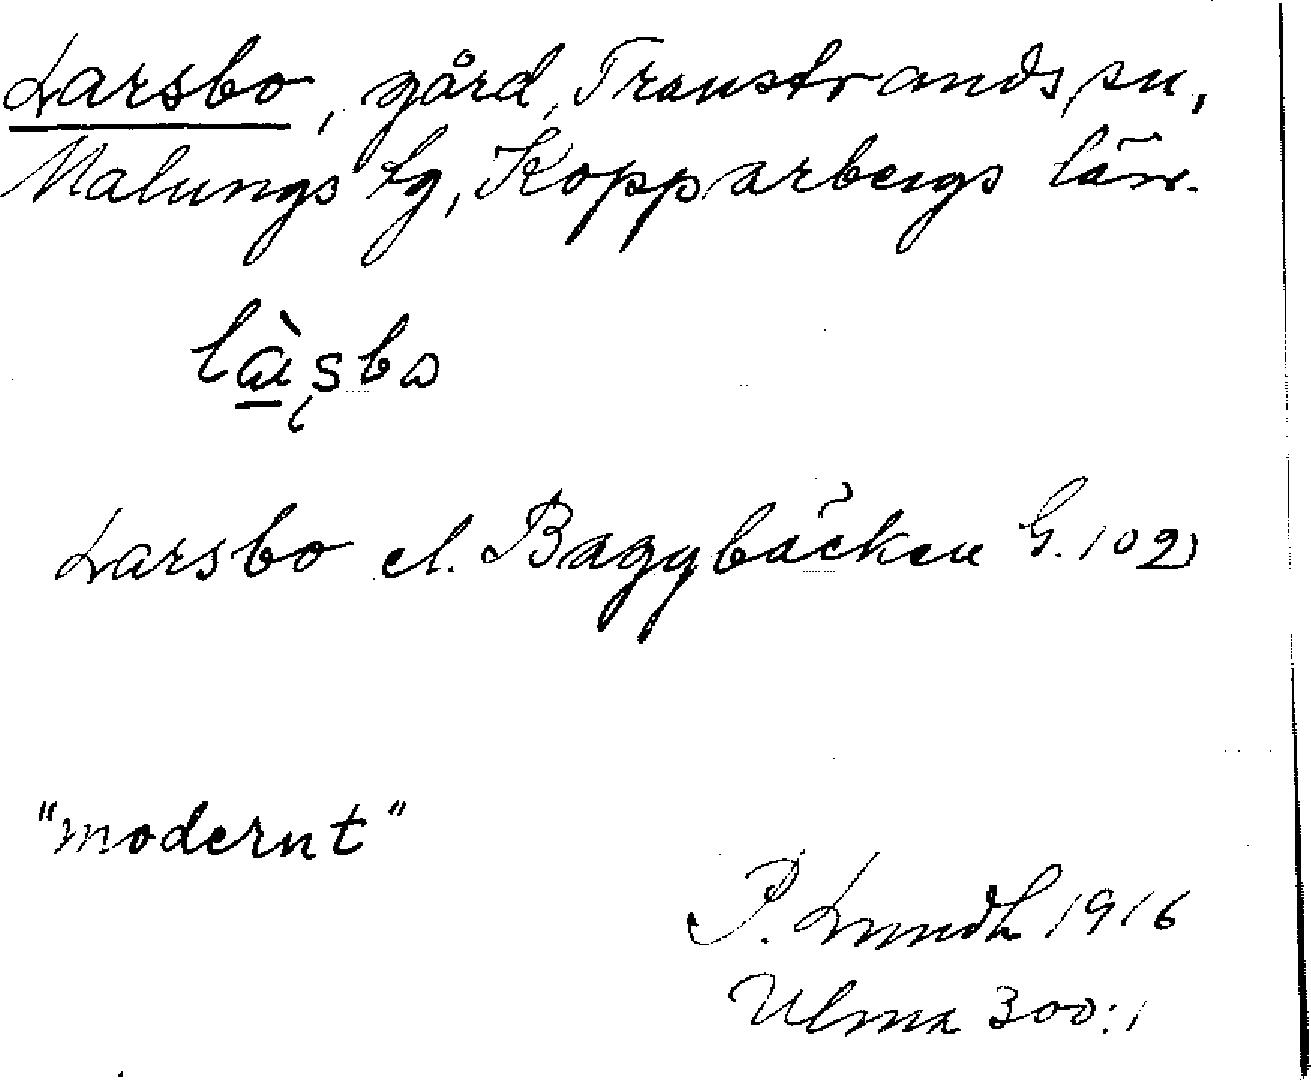 Larsbo, gård, Transtrands sn,
Malungs tg, Kopparbergs län.
làs̨bo
Larsbo el. Baggbäcken G. 102
"modernt"
P. Lundh 1916
Ulma 300:1